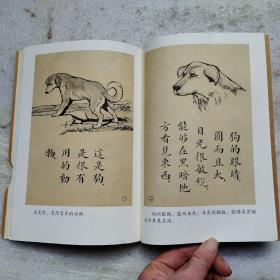 這是狗，
是很有
用的動
物。
这是狗，是很有用的动物。
狗的眼睛，
圓而且大，
目光很敏銳，
能够在黑暗地
方看見東西。
狗的眼睛，圆而且大，目光很敏锐，能够在黑暗
地方看见东西。